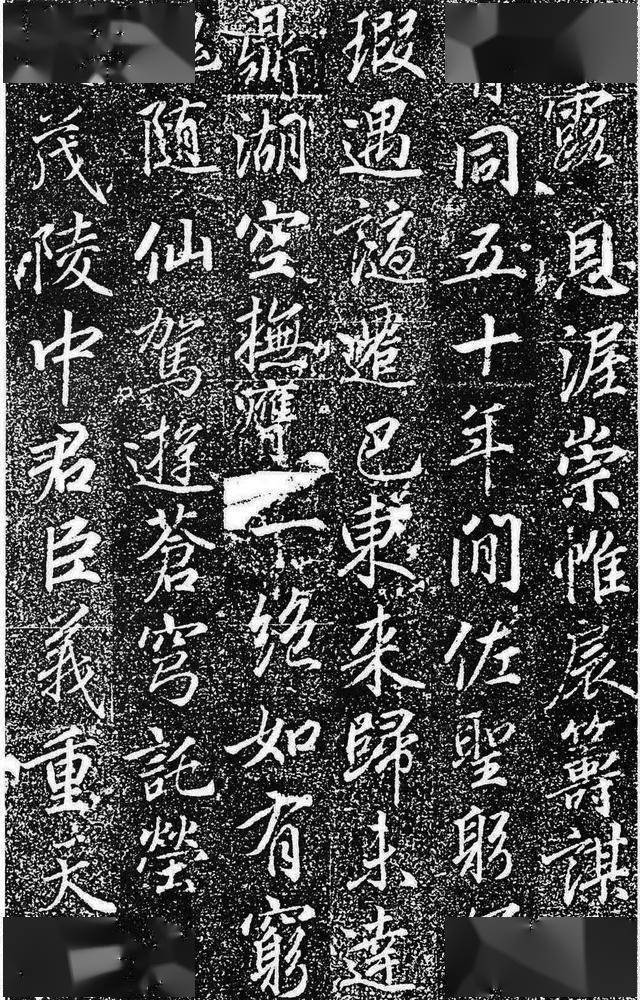 露恩渥崇帷扆籌謀
同五十年間佐聖躬
瑕遇謫遷巴東来歸未達
鼎湖空撫膺一絶如有窮
随仙駕遊蒼穹託榮
茂陵中君臣義重天